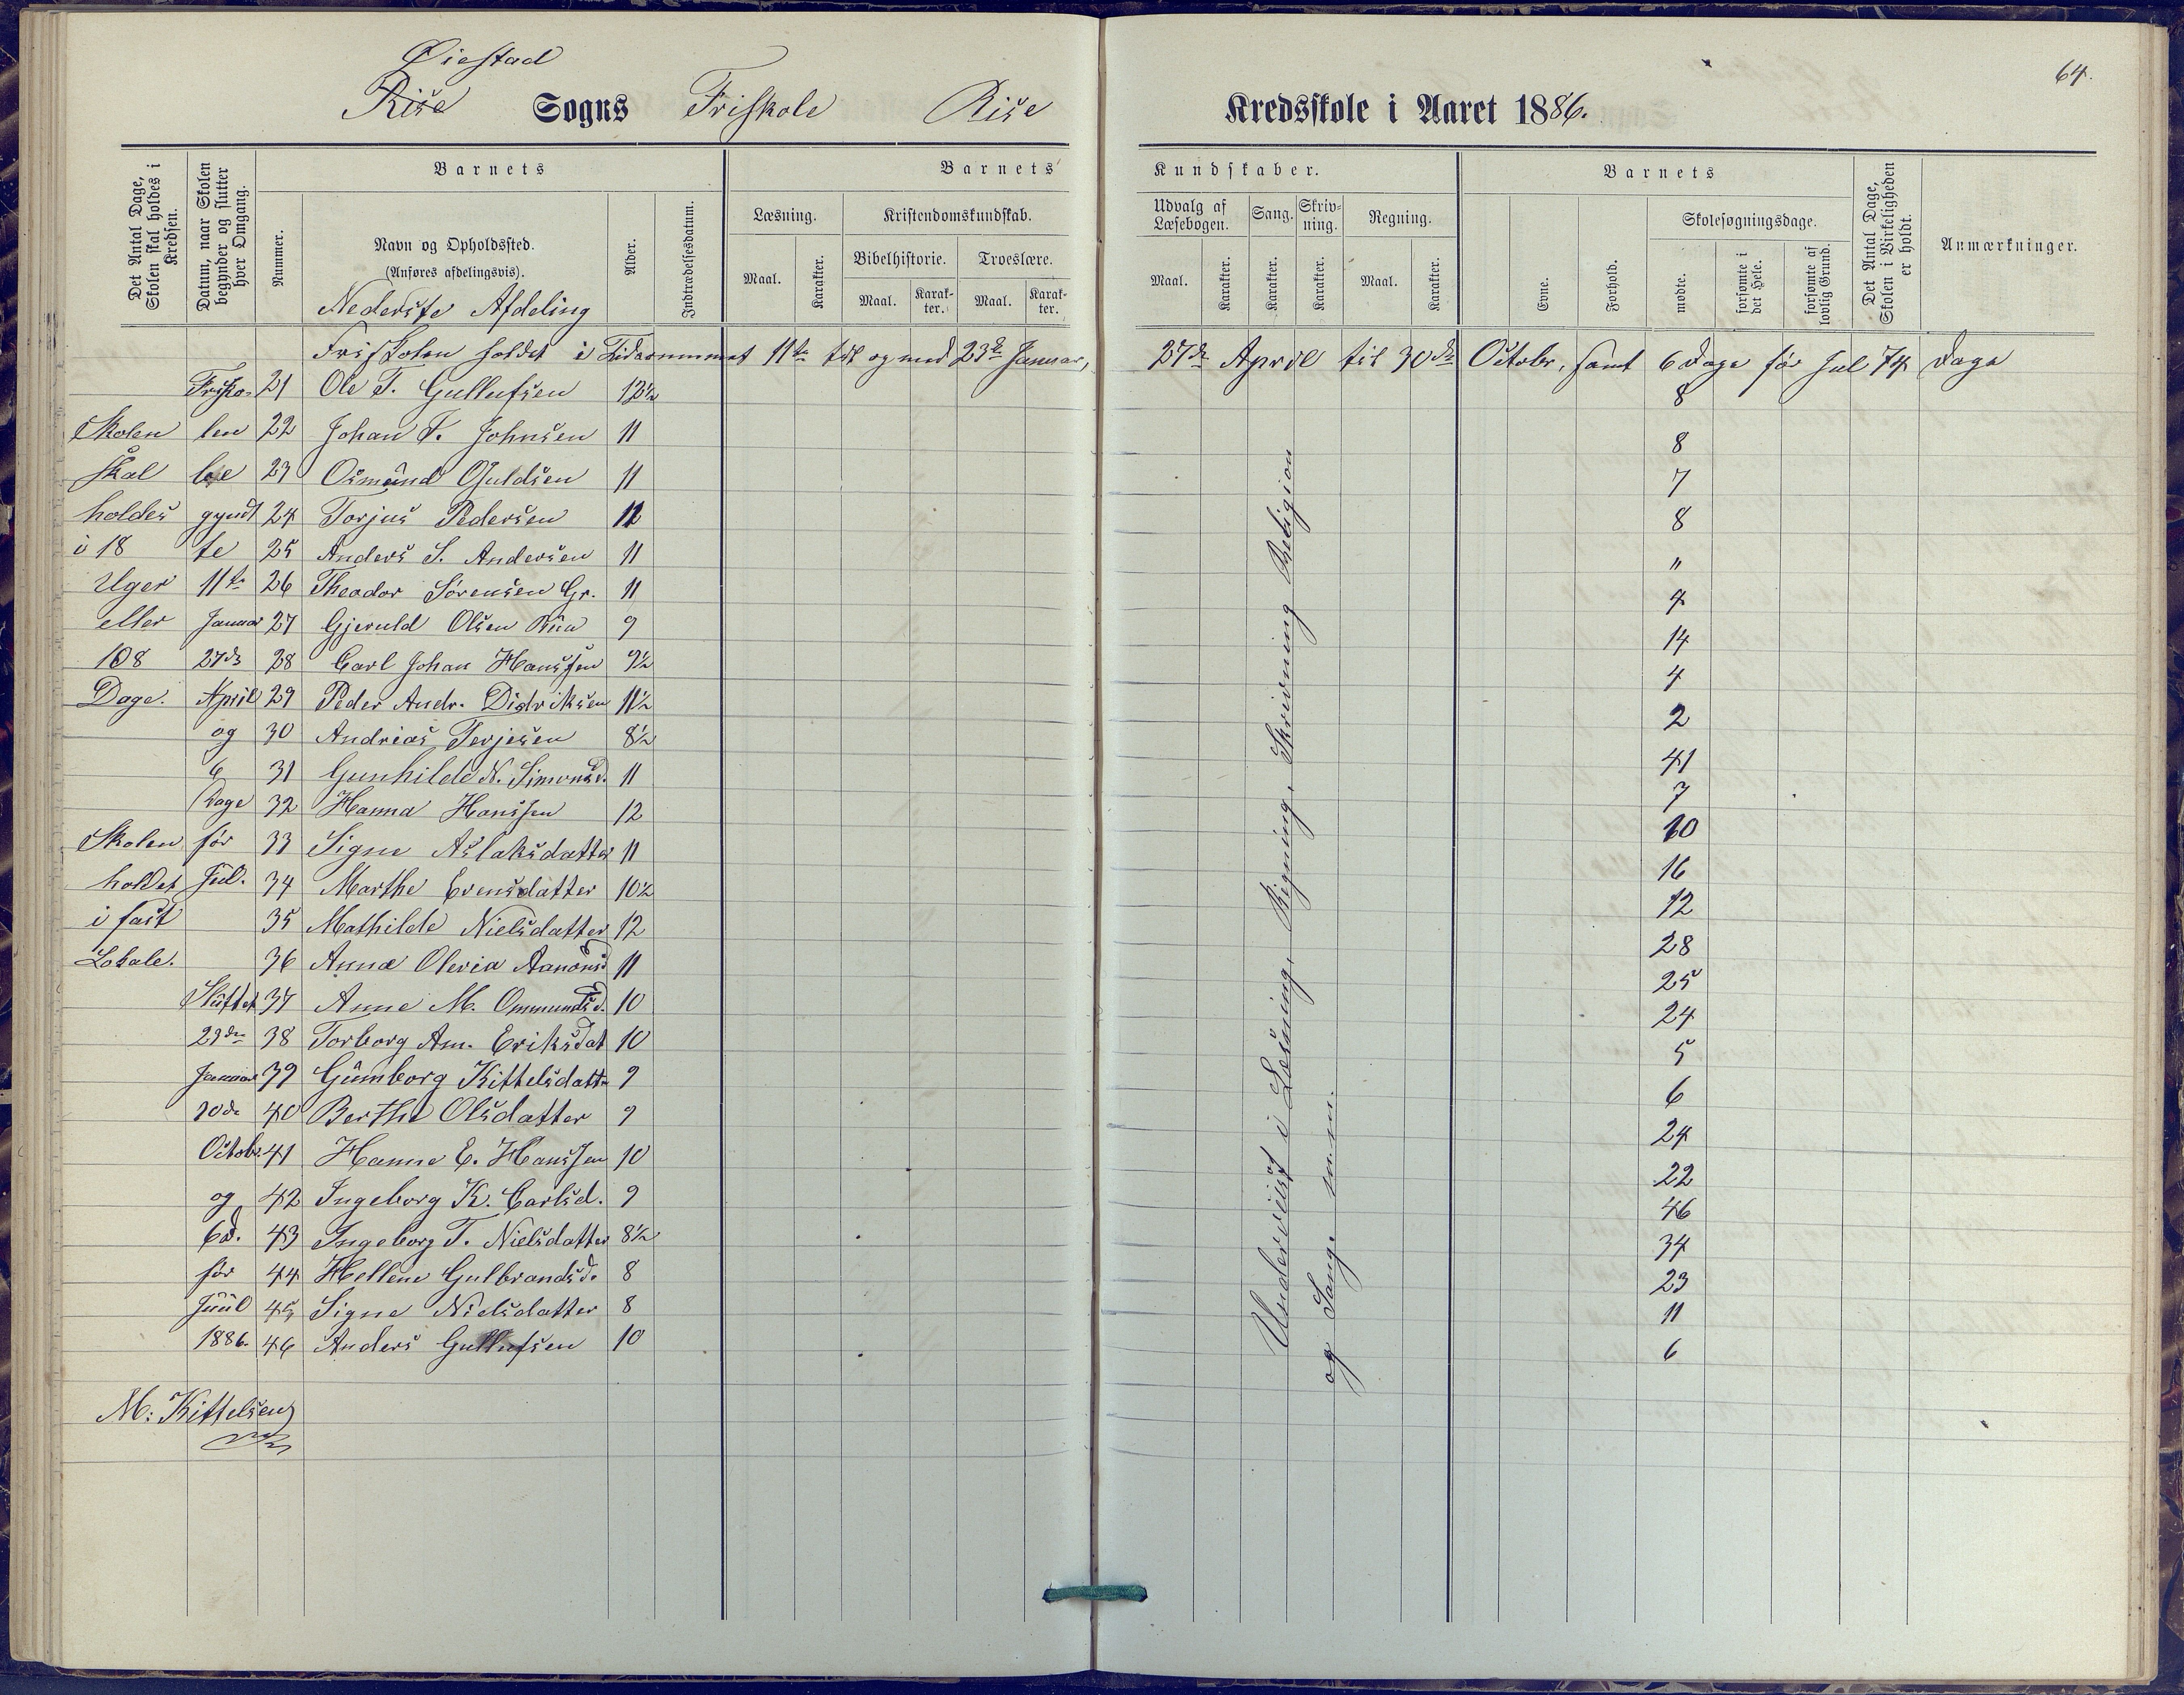 Øiestad
Rise Sogns Friskole Rise Kredsskole i Aaret 1886.
64.
Det Antal Dage, Skolen skal holdes i Kredsen.
Datum, naar Skolen begynder og slutter hver Omgang.
Barnets
Nummer.
Navn og Opholdssted.
(Anføres afdelingsvis).
Nederste Afdeling
Alder.
Indtrædelsesdatum.
Barnets Kundskaber.
Læsning.
Maal.
Karakter.
Kristendomskundskab.
Bibelhistorie.
Maal.
Karakter.
Troeslære.
Maal.
Karakter.
Udvalg af Læsebogen.
Maal.
Karakter.
Sang.
Karakter.
Skrivning.
Karakter.
Regning.
Maal.
Karakter.
Barnets
Evne.
Forhold.
Skolesøgningsdage.
mødte.
forsømte i det Hele.
forsømte af lovlig Grund.
Det Antal Dage, Skolen i Virkeligheden er holdt.
Anmærkninger.
Friskolen holdet i Tidsrummet 11te til og med 23de Januar, 27de April til 30de Octobr, samt 6 Dage før Jul 74 Dage
Frisko- 21 Ole T. Gullufsen 12½ 8
Skolen len 22 Johan T. Johnsen 11 8
skal be 23 Osmund Guldsen 11 7
holdes gyndt 24 Torjus Pedersen 12 8
i 18 te 25 Anders S. Andersen 11 "
Uger 11te 26 Theodor Sørensen Gr. 11 4
eller Januar 27 Gjeruld Olsen 9 14
108 27de 28 Carl Johan Hanssen 9½ 4
Dage. April 29 Peder Andr. Didriksen 11½ 2
og 30 Andreas Terjesen 8½ 41
6 31 Gunhilde N. Simonsd. 11 7
Dage 32 Hanna Hanssen 12 10
Skolen før 33 Signe Aslaksdatter 11 16
holdet Jul. 34 Marthe Evensdatter 10½ 12
i fast 35 Mathilde Nielsdatter 12 28
Lokale. 36 Anna Olevia Aanonsd 11 25
Sluttet 37 Anne M. Ommundsd. 10 24
23de 38 Torborg Am. Eriksdat 10 5
Januar 39 Gumborg Kittelsdattr 9 6
30de 40 Berthe Olsdatter 9 24
Octobr. 41 Hanne E. Hanssen 10 22
og 42 Ingeborg K. Carlsd. 9 46
6 d. 43 Ingeborg T. Nielsdatter 8½ 34
før 44 Hellene Gulbrandsd. 8 23
Juul 45 Signe Nielsdatter 8 11
1886. 46 Anders Gullufsen 10 6
M: Kittelsen
Underviist i Læsning, Regning, Skrivning Religion
og Sang. m.m.